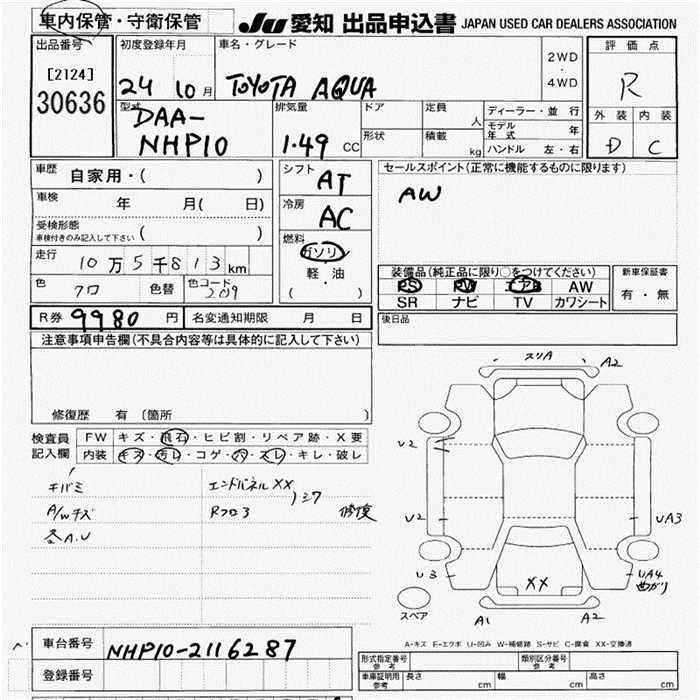 車内保管・守衛保管 JU 愛知 出品申込書 JAPAN USED CAR DEALERS ASSOCIATION
出品番号 初度登録年月 車名・グレード 評価点
[2124] 24 10月 TOYOTA AQUA 2WD・4WD R
30636
型式 排気量 ドア 定員 人 ディーラー・並行 外装 内装
DAA- モデル年式 年
NHP10 1.49 CC 形状 積載 kg ハンドル 左・右 D C
車歴 自家用・( ) シフト AT セールスポイント(正常に機能するものに限ります)
車検 年 月( 日) 冷房 AC AW
受検形態
車検付きのみ記入して下さい ( )
走行 10万5千813km 燃料 ガソリン
軽・油
( )
装備品(純正品に限り〇をつけてください) 新車保証書
色 クロ 色替 色コード 209 PS PW エアB AW 有・無
SR ナビ TV カワシート
R券 9980円 名変通知期限 月 日 後日品
注意事項申告欄(不具合内容等は具体的に記入して下さい)
修復歴 有 (箇所 )
検査員記入欄 FW キズ・飛石・ヒビ割・リペア跡・X要
内装 キズ・汚レ・コゲ・穴・スレ・キレ・破レ
キバミ エンドパネルXX
A/Wキズ Rフロア シワ 修復
各A.U
スリA A2
U2
U2 UA3
U3 UA4
曲がり
XX
スペア A1 A2
車台番号 NHP10-2116287
登録番号
A-キズ E-エクボ U-凹み W-補修跡 S-サビ C-腐食 XX-交換済
形式指定番号 参考 類別区分番号 参考
車庫証明用 参考 長さ cm 幅 cm 高さ cm